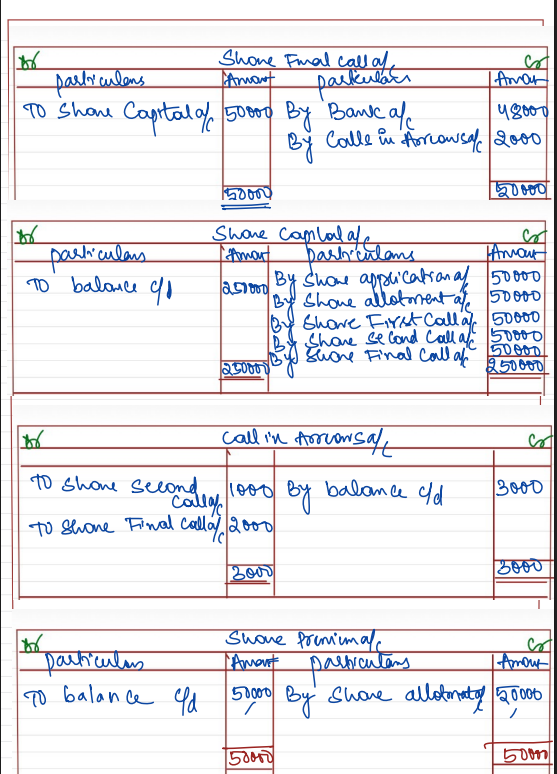 Dr Share Final call a/c Cr
particulars Amount particulars Amount
To Share Capital a/c 50000 By Bank a/c 48000
By Calls in Arrears a/c 2000
50000 50000
Dr Share Capital a/c Cr
particulars Amount particulars Amount
To balance c/d 250000 By Share application a/c 50000
By Share allotment a/c 50000
By Share First Call a/c 50000
By Share Second Call a/c 50000
By Share Final Call a/c 50000
250000 250000
Dr Call in Arrears a/c Cr
To Share Second 1000 By balance c/d 3000
Call a/c
To Share Final Call a/c 2000
3000 3000
Dr Share Premium a/c Cr
particulars Amount particulars Amount
To balance c/d 50000 By Share allotment a/c 50000
50000 50000